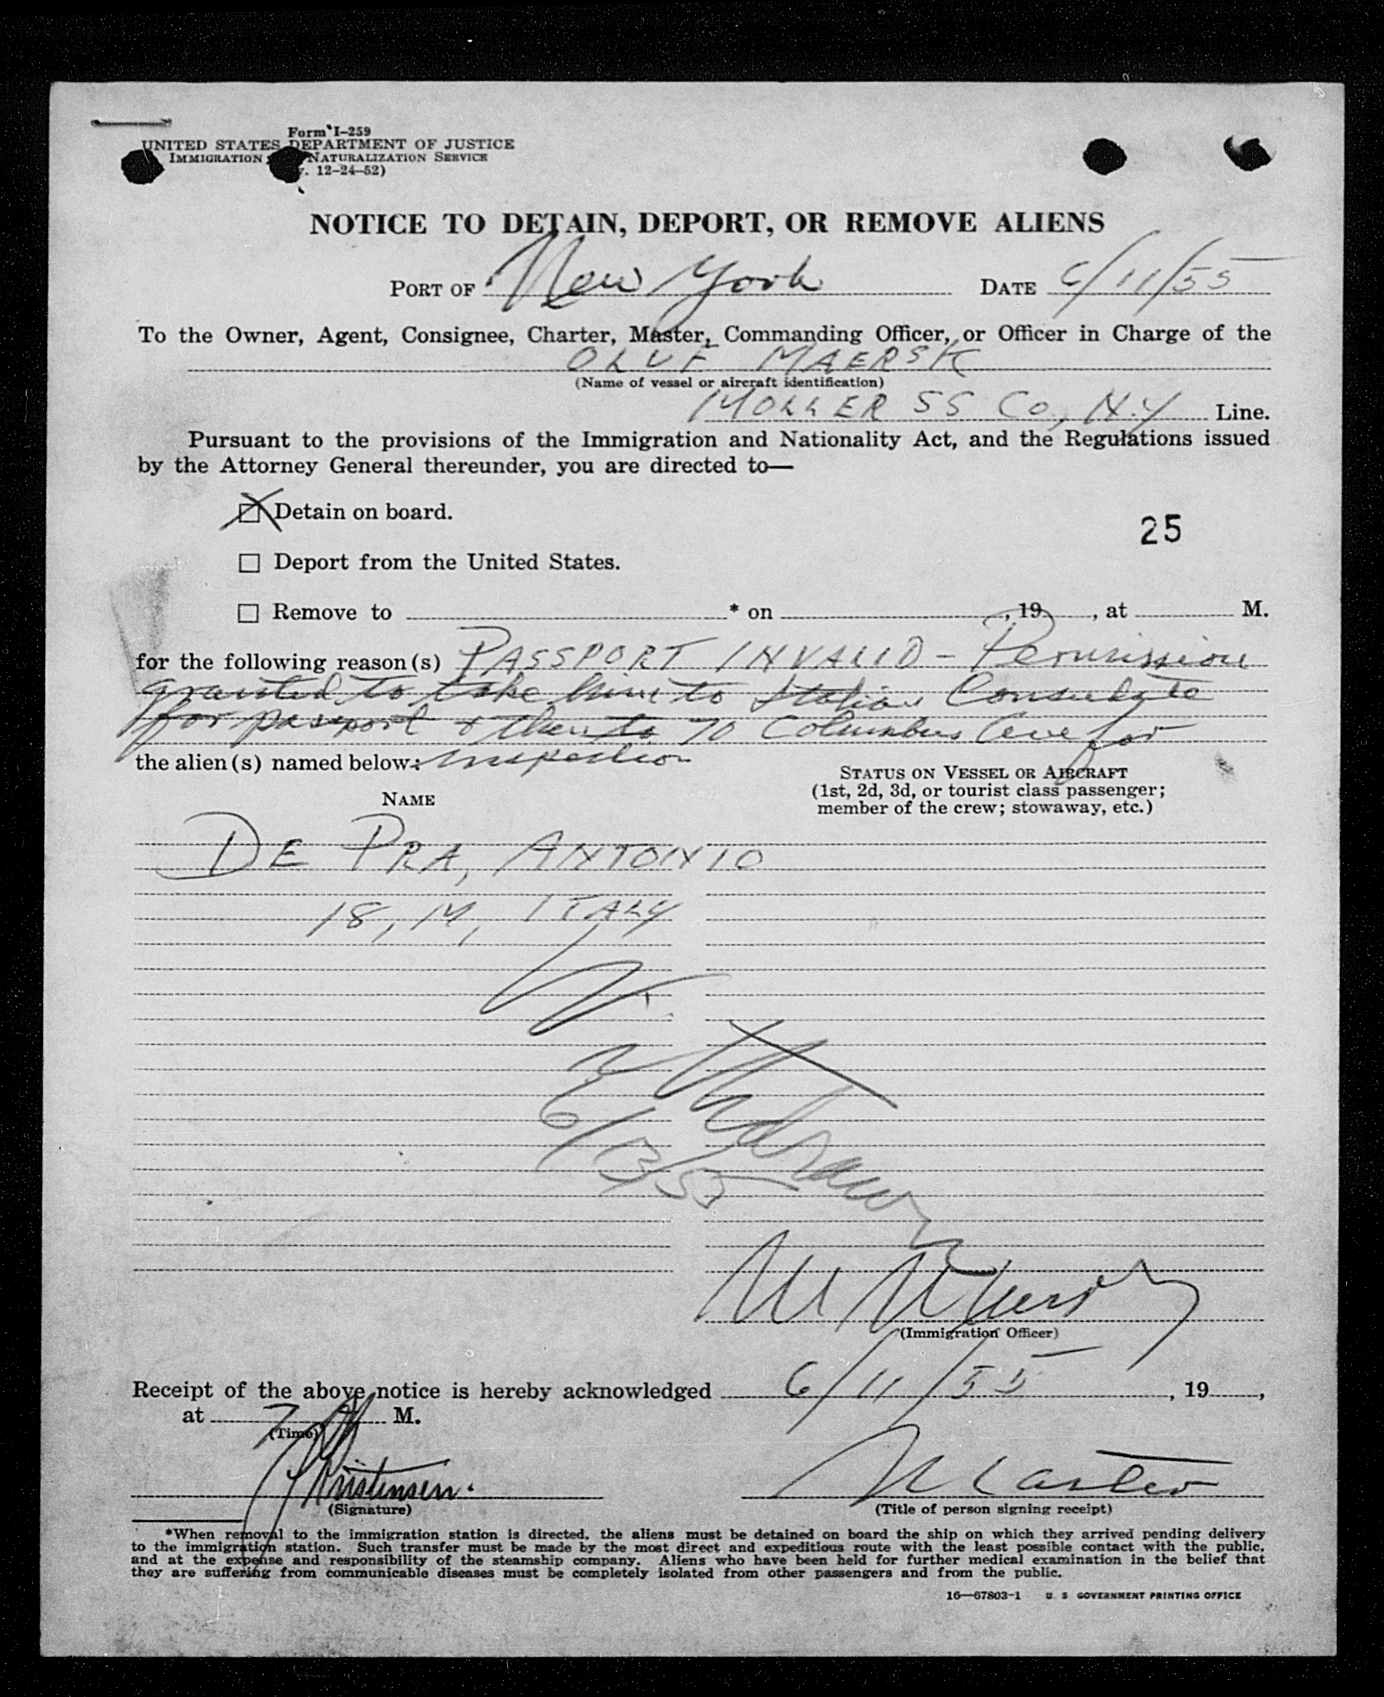 Form I-259
UNITED STATES DEPARTMENT OF JUSTICE
IMMIGRATION NATURALIZATION SERVICE
. 12-24-52)
NOTICE TO DETAIN, DEPORT, OR REMOVE ALIENS
PORT OF New York DATE 6/11/55
To the Owner, Agent, Consignee, Charter, Master, Commanding Officer, or Officer in Charge of the
OLUF MAERSK
(Name of vessel or aircraft identification)
MOLLER SS Co, N.Y Line.
Pursuant to the provisions of the Immigration and Nationality Act, and the Regulations issued
by the Attorney General thereunder, you are directed to—
Detain on board.
25
Deport from the United States.
Remove to * on , 19 , at M.
for the following reason(s) PASSPORT INVALID - Permission
granted to take him to Italian Consulate
for passport & then to 70 Columbus Ave for
the alien(s) named below: inspection
STATUS ON VESSEL OR AIRCRAFT
(1st, 2d, 3d, or tourist class passenger;
member of the crew; stowaway, etc.)
NAME
DE PRA, ANTONIO
18, M, ITALY
Withdrawn
6/13/55
(Immigration Officer)
Receipt of the above notice is hereby acknowledged 6/11/55 , 19 ,
at 7 M.
(Time)
Kristensen.
Master
(Signature)
(Title of person signing receipt)
*When removal to the immigration station is directed, the aliens must be detained on board the ship on which they arrived pending delivery
to the immigration station. Such transfer must be made by the most direct and expeditious route with the least possible contact with the public,
and at the expense and responsibility of the steamship company. Aliens who have been held for further medical examination in the belief that
they are suffering from communicable diseases must be completely isolated from other passengers and from the public.
16—67803-1 U. S. GOVERNMENT PRINTING OFFICE